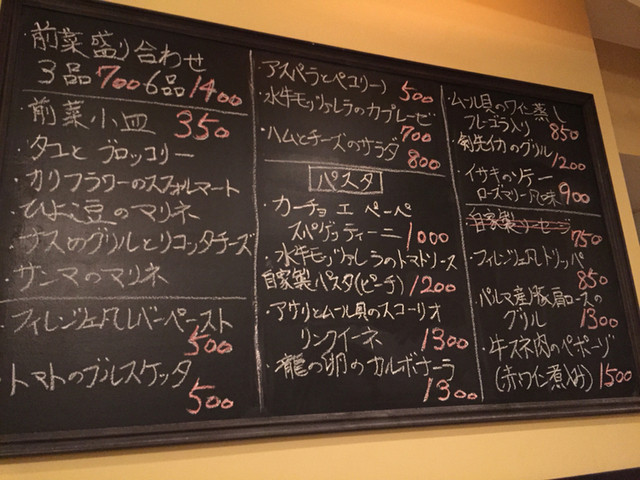 ・前菜盛り合わせ
3品700 6品1400
・前菜小皿 350
・タコとブロッコリー
・カリフラワーのスフォルマート
・ひよこ豆のマリネ
・ナスのグリルとリコッタチーズ
・サンマのマリネ
・フィレンツェ風レバーペースト
500
・トマトのブルスケッタ
500
・アスパラとペコリーノ
500
・水牛モッツァレラのカプレーゼ
700
・ハムとチーズのサラダ
800
パスタ
・カーチョ エ ペーペ
スパゲッティーニ 1000
・水牛モッツァレラのトマトソース
自家製パスタ(ピーチ) 1200
・アサリとムール貝のスコーリオ
リンクイーネ 1300
・龍の卵のカルボナーラ
1300
・ムール貝のワイン蒸し
フレーゴラ入り 850
・剣先イカのグリル
1200
・イサキのソテー
ローズマリー風味 900
・自家製ソーセージ
750
・フィレンツェ風トリッパ
850
・パルマ産豚肩ロースの
グリル 1300
・牛スネ肉のペポーゾ
(赤ワイン煮込み) 1500